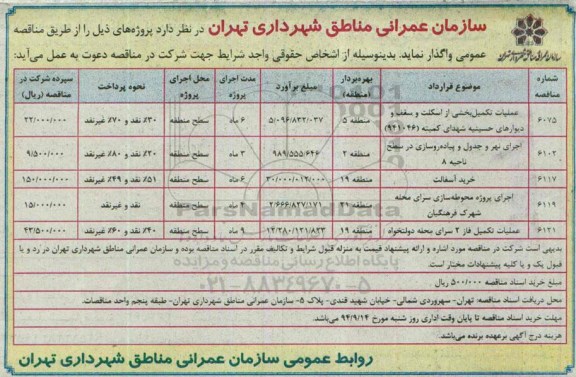 سازمان عمرانی مناطق شهرداری تهران در نظر دارد پروژه‌های ذیل را از طریق مناقصه
عمومی واگذار نماید. بدینوسیله از اشخاص حقوقی واجد شرایط جهت شرکت در مناقصه دعوت به عمل می‌آید:
شماره مناقصه موضوع قرارداد بهره‌بردار (منطقه) مبلغ برآورد مدت اجرای پروژه محل اجرای پروژه نحوه پرداخت سپرده شرکت در مناقصه (ریال)
۶۰۷۵ عملیات تکمیل‌بخشی از اسکلت و سقف و دیوارهای حسینیه شهدای کمیته (۹۴۱۰۴۶) منطقه ۵ ۵/۰۹۶/۸۳۲/۰۳۷ ۶ ماه سطح منطقه ۳۰٪ نقد و ۷۰٪ غیرنقد ۲۲/۰۰۰/۰۰۰
۶۱۰۲ اجرای نهر و جدول و پیاده‌روسازی در سطح ناحیه ۸ منطقه ۲ ۹۸۹/۵۵۵/۶۴۶ ۳ ماه سطح منطقه ۲۰٪ نقد و ۸۰٪ غیرنقد ۹/۵۰۰/۰۰۰
۶۱۱۷ خرید آسفالت منطقه ۱۹ ۳۰/۰۰۰/۰۱۲/۰۰۰ ۶ ماه سطح منطقه ۵۱٪ نقد و ۴۹٪ غیرنقد ۱۵۰/۰۰۰/۰۰۰
۶۱۱۹ اجرای پروژه محوطه‌سازی سرای محله شهرک فرهنگیان منطقه ۲۱ ۲/۶۶۶/۸۲۷/۱۷۱ ۴ ماه سطح منطقه نقد و غیرنقد ۱۵/۰۰۰/۰۰۰
۶۱۲۱ عملیات تکمیل فاز ۲ سرای محله دولتخواه منطقه ۱۹ ۱۴/۲۸۰/۱۲۱/۸۲۳ ۹ ماه سطح منطقه ۴۰٪ نقد و ۶۰٪ غیرنقد ۴۳/۵۰۰/۰۰۰
بدیهی است شرکت در مناقصه مورد اشاره و ارائه پیشنهاد قیمت به منزله قبول شرایط و تکالیف مقرر در اسناد مناقصه بوده و سازمان عمرانی مناطق شهرداری تهران در رد و یا
قبول یک و یا کلیه پیشنهادات مختار است.
مبلغ خرید اسناد مناقصه ۵۰۰/۰۰۰ ریال
محل دریافت اسناد مناقصه: تهران- سهروردی شمالی- خیابان شهید قندی- پلاک ۵- سازمان عمرانی مناطق شهرداری تهران- طبقه پنجم واحد مناقصات.
مهلت خرید اسناد مناقصه تا پایان وقت اداری روز شنبه مورخ ۹۴/۹/۱۴ می‌باشد.
هزینه درج آگهی برعهده برنده می‌باشد.
روابط عمومی سازمان عمرانی مناطق شهرداری تهران
ParsNamadData
پایگاه اطلاع رسانی مناقصه و مزایده
۰۲۱-۸۸۳۴۹۶۷۰-۵